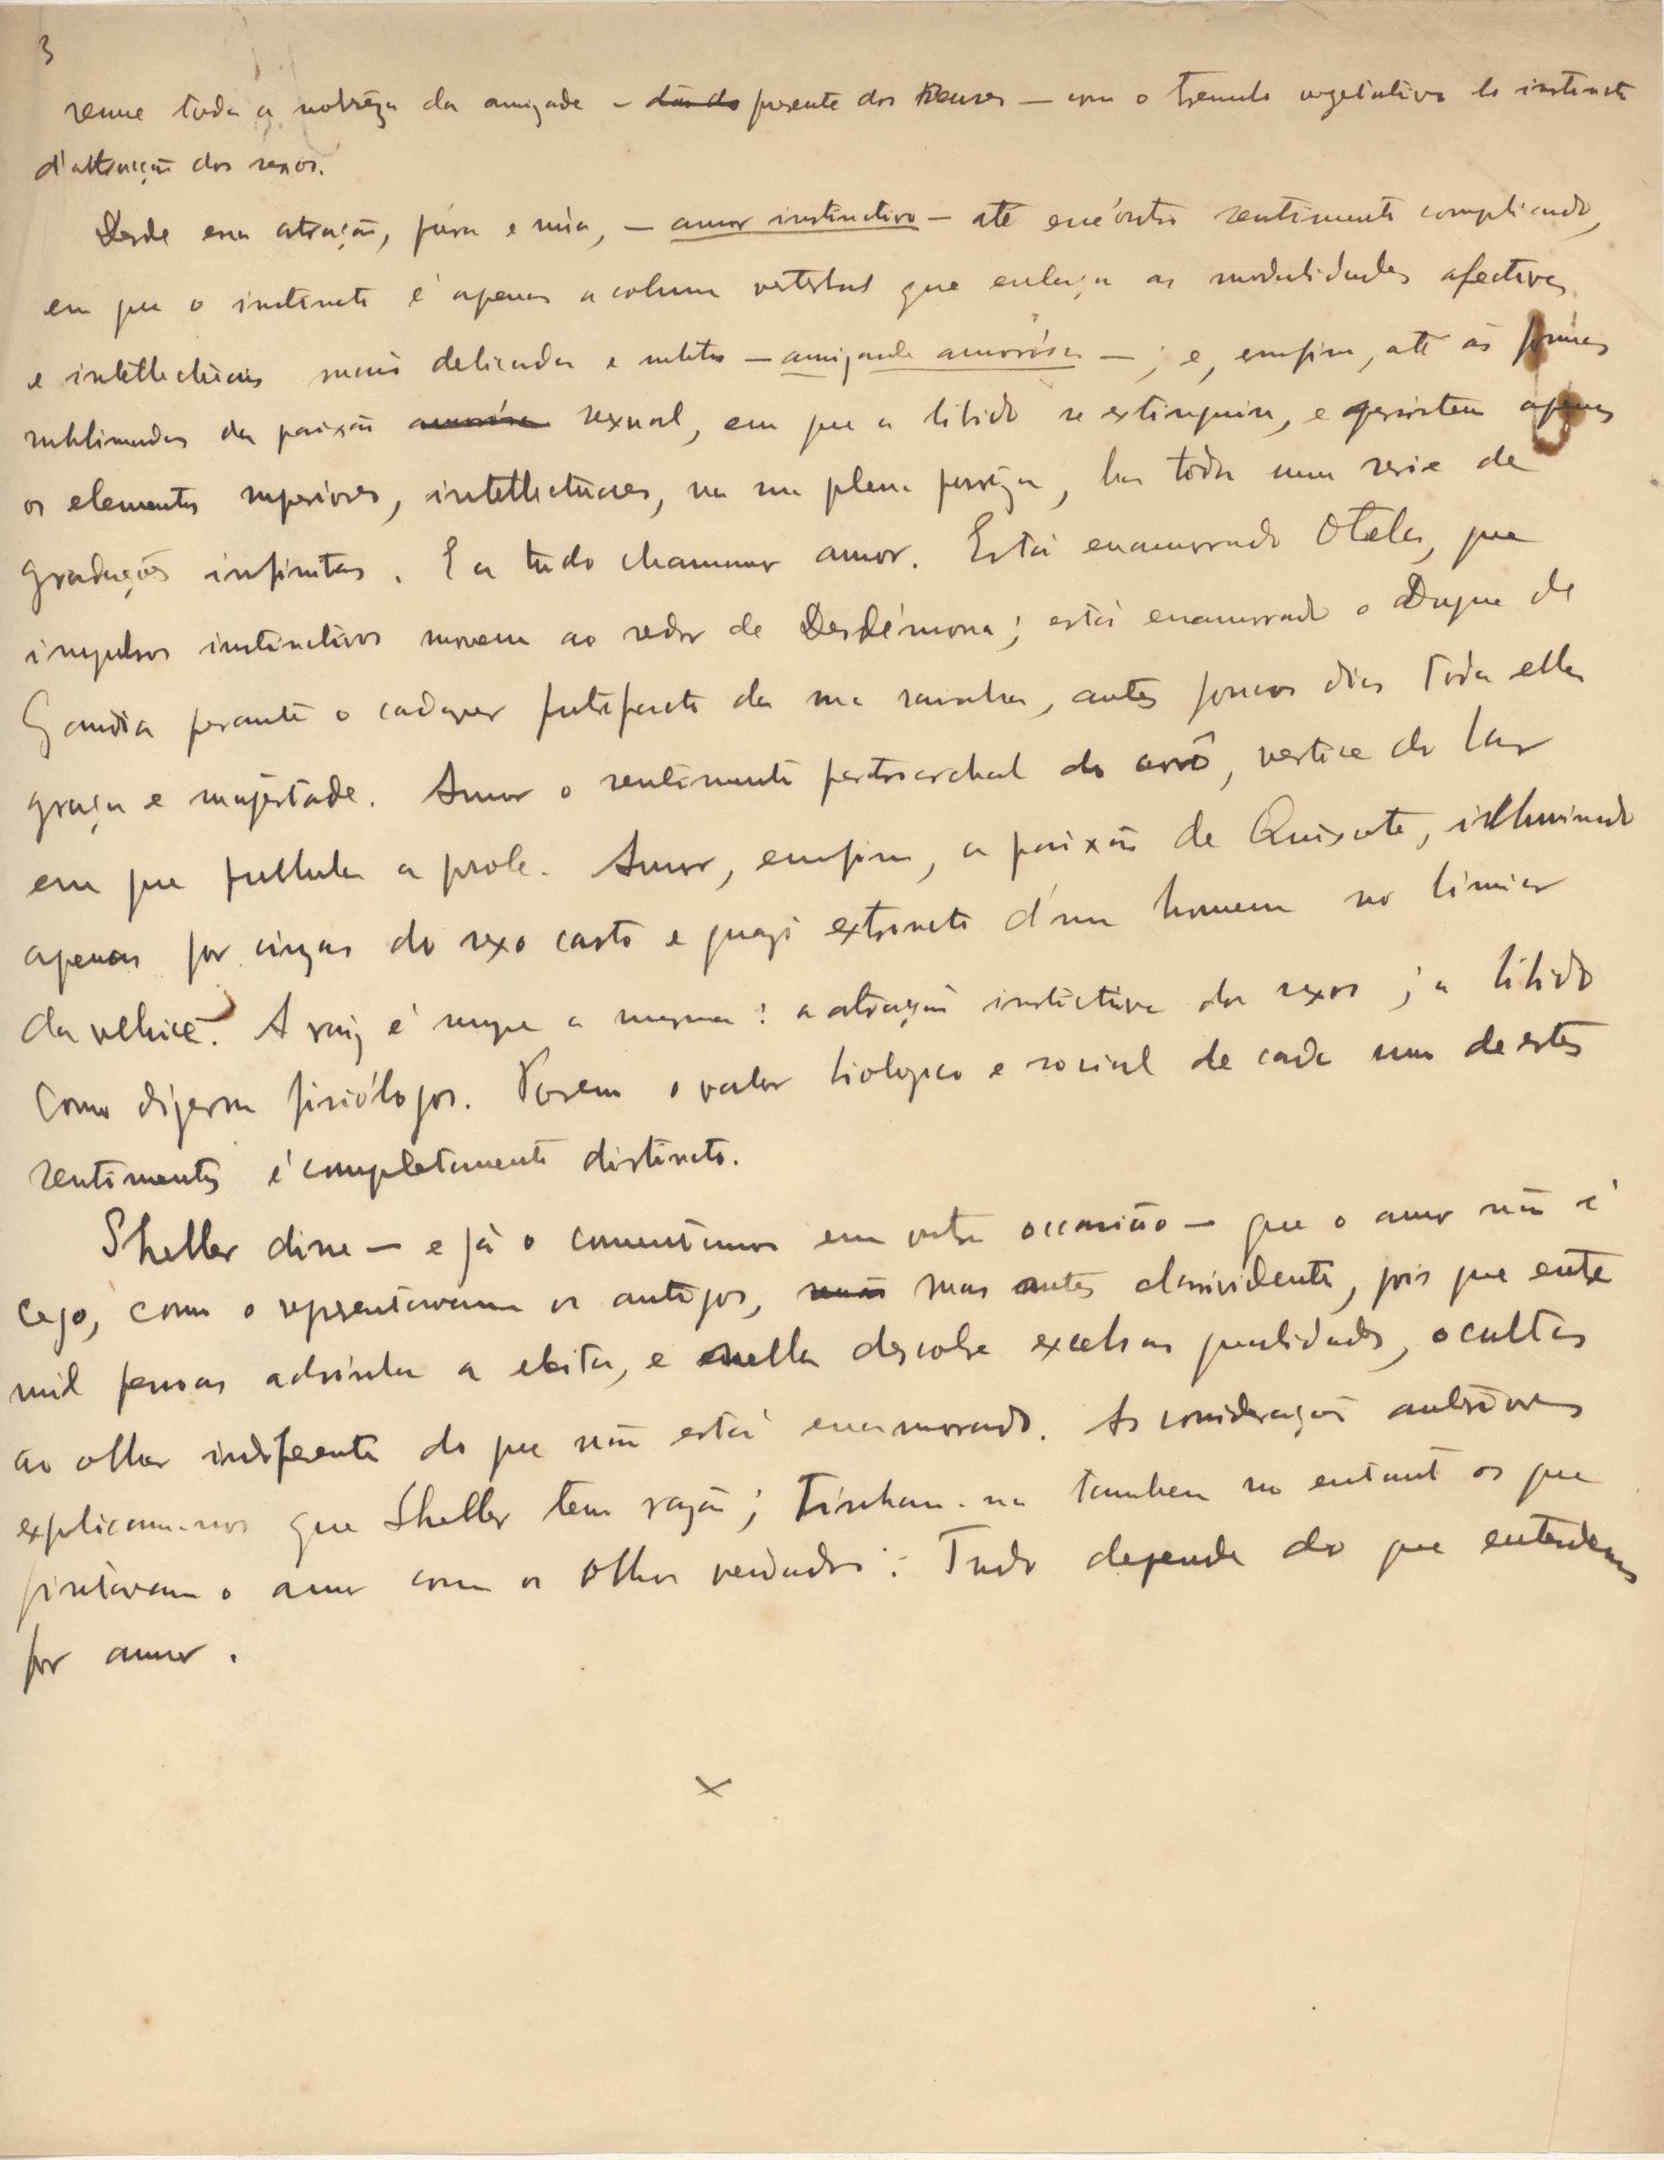 3
reune toda a nobrêza da amizade – dão do presente dos Deuses – com o tremulo vegetativo do instincto
d'attracção dos sexos.
Desde essa atração, pura e núa, – amor instinctivo – até esse outro sentimento complicado,
em que o instincto é apenas a coluna vertebral que enlaça as modalidades afectivas
e intellectuais mais delicadas e subtis – amizade amorósa – ; e, emfim, até ás fórmas
sublimadas da paixão amorósa sexual, em que a libido se extinguiu, e persistem apenas
os elementos superiores, intellectuaes, na sua plena purêza, ha toda uma serie de
gradações infinitas. E a tudo chamamos amor. Está enamorado Otelo, que
impulsos instinctivos movem ao redor de Desdémona; está enamorado o Duque de
Gandia perante o cadaver putrefacto da sua rainha, antes poucos dias toda ella
graça e majestade. Amor o sentimento patriarchal do avô, vertice do lar
em que pullula a prole. Amor, emfim, a paixão de Quixote, illuminado
apenas por cinzas do sexo casto e quazi extincto d'um homem no limiar
da velhice. A raiz é sempre a mesma: a atração instictiva dos sexos; a libido
como dizem fisiólogos. Porem o valor biologico e social de cada um de estes
sentimentos é completamente distincto.
Sheller disse – e já o comentamos em outra occasião – que o amor não é
cego, como o representavam os antigos, mas antes clarividente, pois que entre
mil pessoas adivinha a eleita, e nella descobre excelsas qualidades, ocultas
ao olhar indiferente do que não está enamorado. As considerações anteriores
explicam-nos que Sheller tem razão; tinham-na tambem no entanto os que
pintavam o amor com os olhos vendados: Tudo depende do que entendemos
por amor.
×